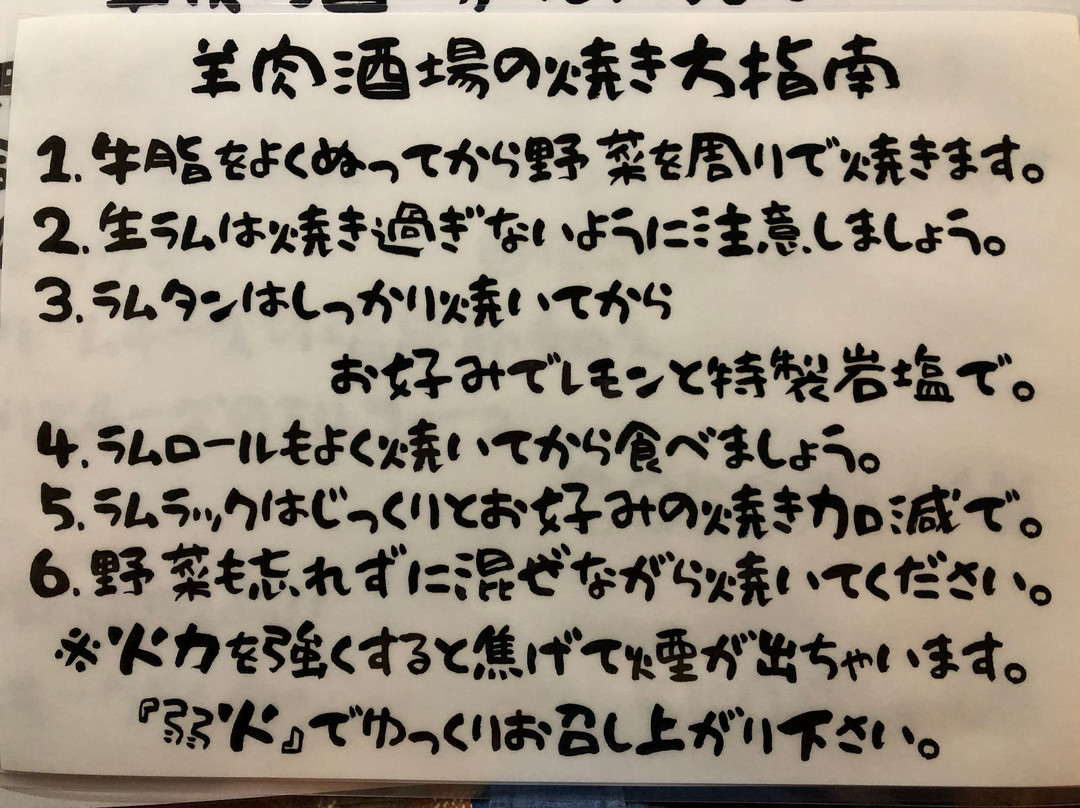 羊肉酒場の焼き大指南
1.牛脂をよくぬってから野菜を周りで焼きます。
2.生ラムは焼き過ぎないように注意しましょう。
3.ラムタンはしっかり焼いてから
お好みでレモンと特製岩塩で。
4.ラムロールもよく焼いてから食べましょう。
5.ラムラックはじっくりとお好みの焼き加減で。
6.野菜も忘れずに混ぜながら焼いてください。
※火力を強くすると焦げて煙が出ちゃいます。
『弱火』でゆっくりお召し上がり下さい。